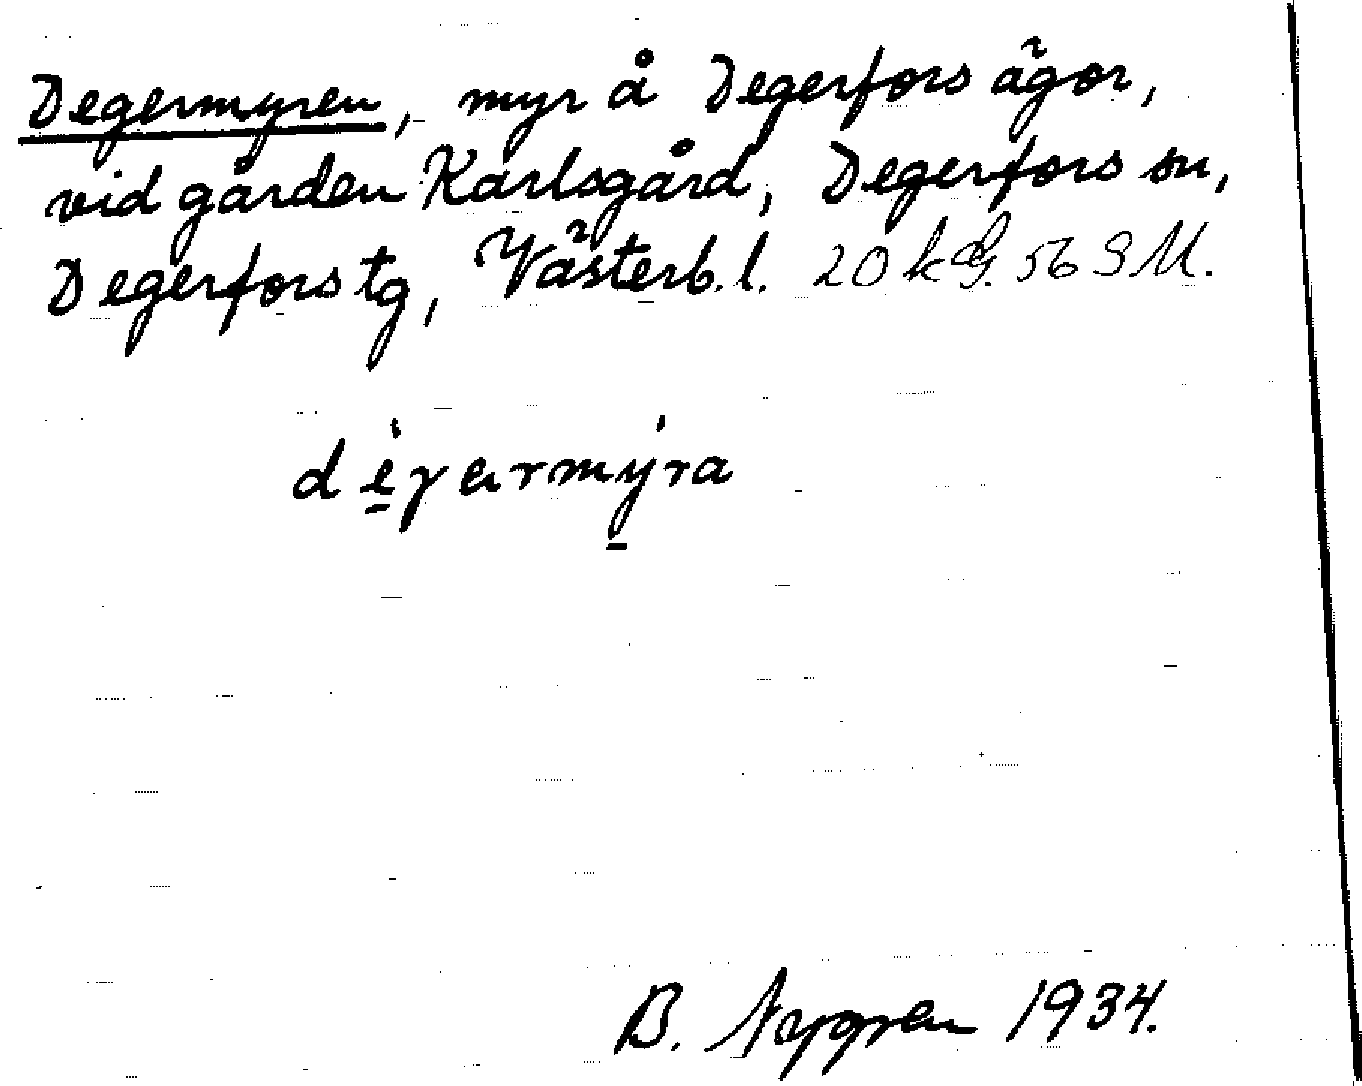 Degermyren, myr å Degerfors ägor,
vid gården Karlsgård, Degerfors sn,
Degerfors tg, Västerb. l. 20 k G. 56 SM.
dẹ́γarmý̠ra
B. Nygren 1934.